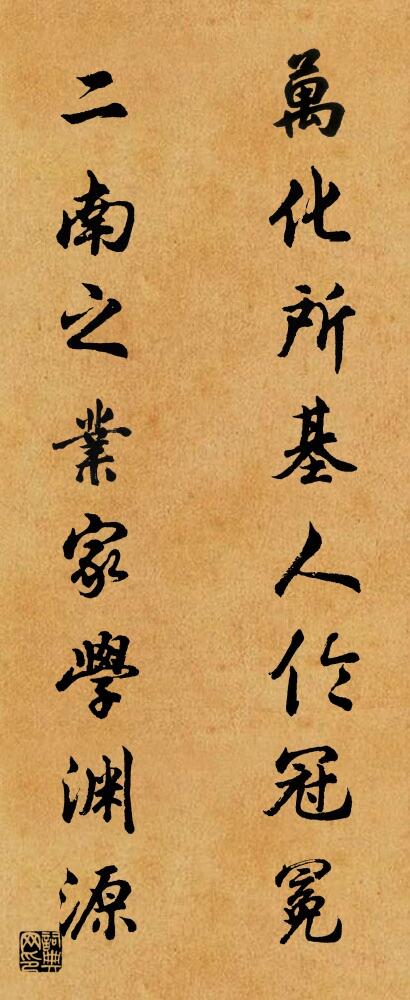 萬化所基人倫冠冕
二南之業家學淵源
詞典
网印